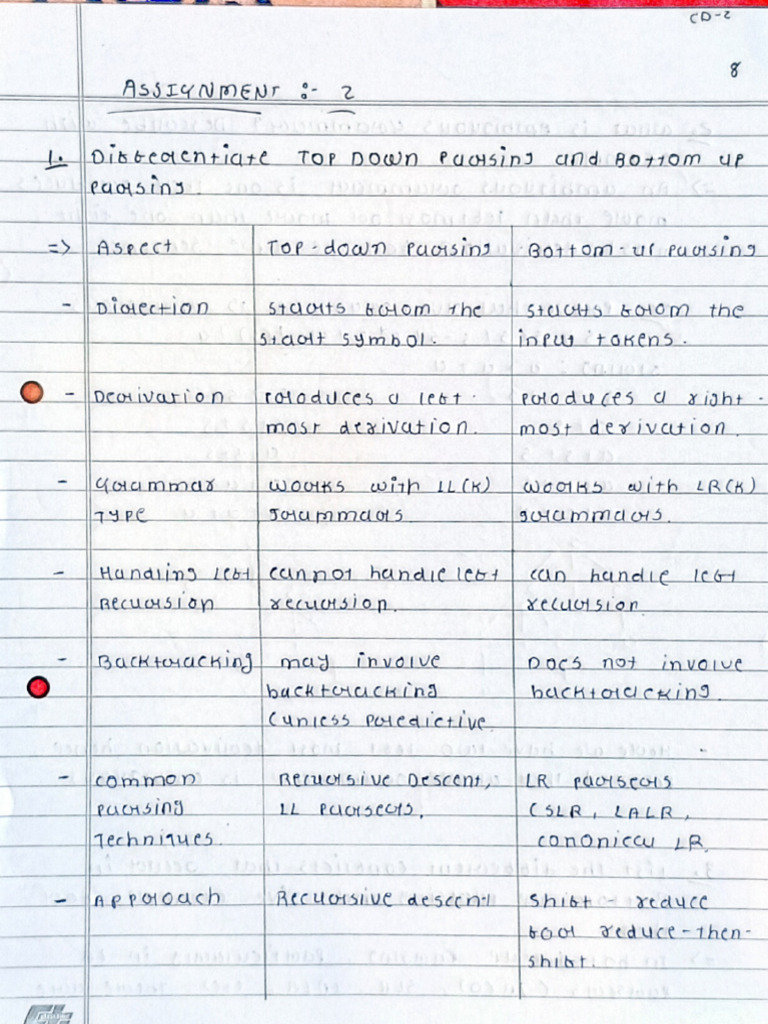 CD-2
8
ASSIGNMENT :- 2
1. Differentiate TOP DOWN Parsing and Bottom up
parsing.
=> Aspect Top-down parsing Bottom-up parsing
- Direction starts from the starts from the
start symbol. input tokens.
- Derivation produces a left- produces a right-
most derivation. most derivation.
- Grammar works with LL(K) works with LR(K)
TYPE grammars. grammars.
- Handling left cannot handle left can handle left
Recursion recursion. recursion.
- Backtracking may involve Does not involve
backtracking backtracking.
(unless predictive.
- common Recursive Descent, LR parsers
parsing LL parsers. (SLR, LALR,
Techniques. canonical LR.
- Approach Recursive descent shift-reduce
reduce-then-
shift.